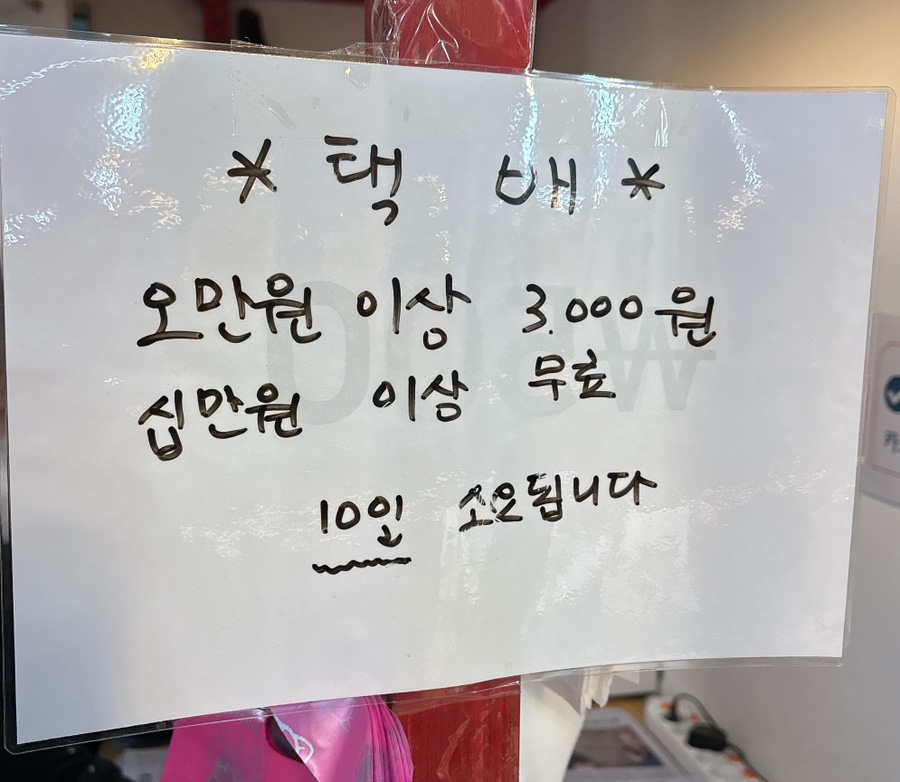 * 택 배 *
오만원 이상 3.000원
십만원 이상 무료
10일 소요됩니다